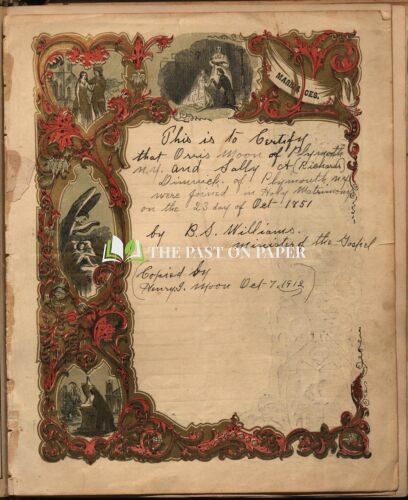 MARRIAGES.
This is to Certify
that Orris Moon of Plymouth
N.Y. and Sally A. Richards
Dimmick of Plymouth N.Y.
were joined in Holy Matrimony
on the 23 day of Oct 1851
by B.S. Williams.
Minister of the Gospel
THE PAST ON PAPER
Copied by
Henry I. Moon Oct 7, 1912